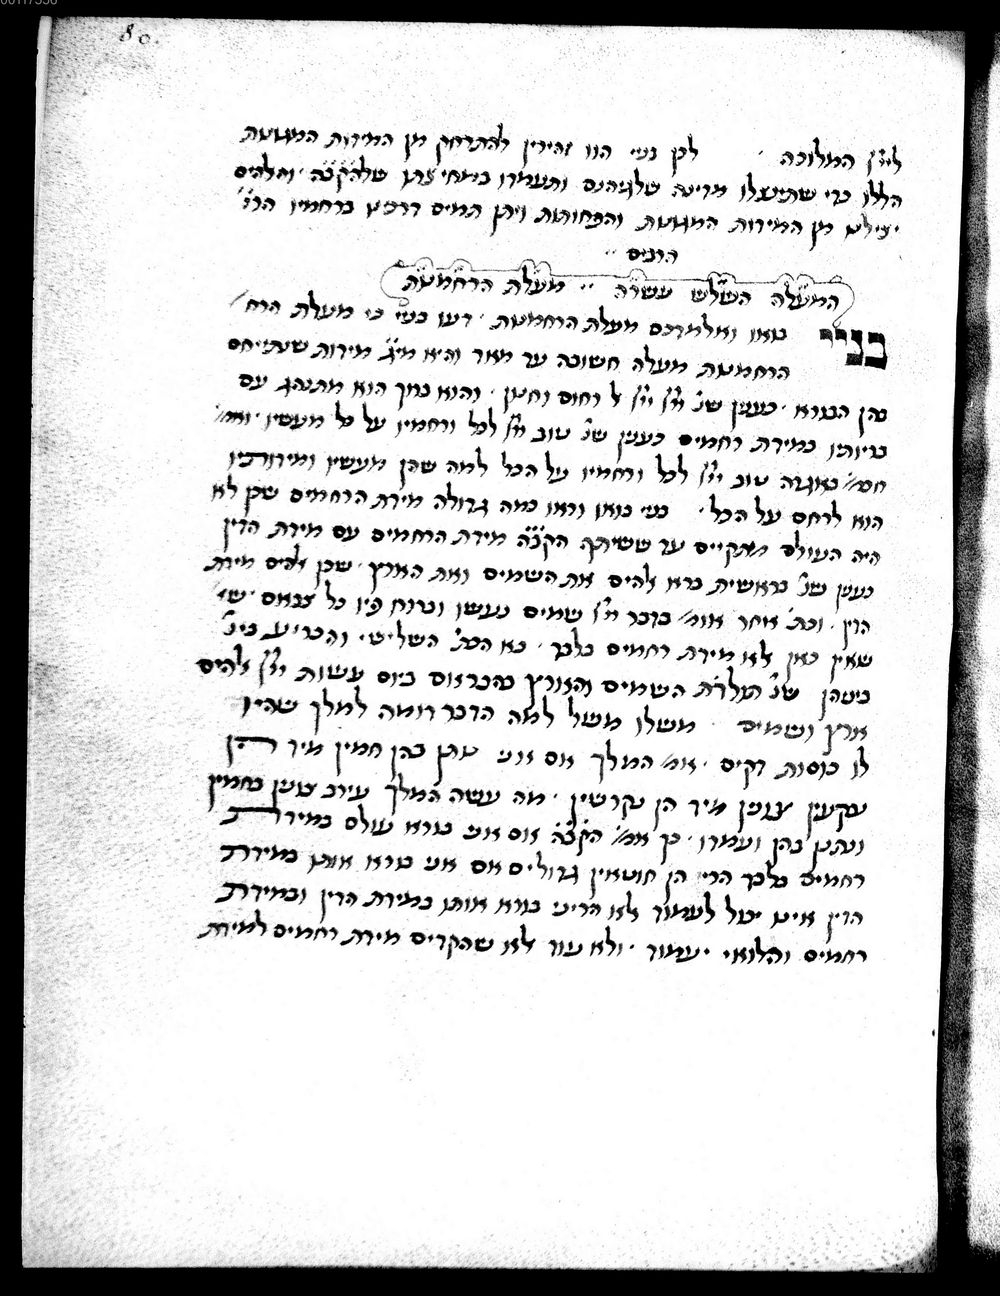 80.
לייי המלוכה · לכן בניי הוו זהירין להתרחק מן המידות המגונות
הללו כדי שתינצלו מדינה שלגיהנם ותעמדו במחיצתו שלהקב״ה · ואלהים
יצילנו מן המידות המגונות והפחותות ויתן תמים דרכינו ברחמיו הרבי׳
הרבים ··
המעלה השלש עשרה ·· מעלת הרחמנות
בניי בואו ואלמדכם מעלת הרחמנות · דעו בניי כי מעלת הרח׳
הרחמנות מעלה חשובה עד מאד והיא מי״ג מידות שנתייחס
בהן הבורא · כענין שנ׳ ייי ייי אל רחום וחנון · והוא ברוך הוא מתנהג עם
בריותיו במידת רחמים כענין שנ׳ טוב ייי לכל ורחמיו על כל מעשיו · ואמ׳
חכמ׳ באגדה טוב ייי לכל ורחמיו על הכל למה שהן מעשיו ומידותיו
הוא לרחם על הכל · בניי בואו וראו כמה גדולה מידת הרחמים שכן לא
היה העולם מתקיים עד ששיתף הקב״ה מידת הרחמים עם מידת הדין
כענין שנ׳ בראשית ברא אלהים את השמים ואת הארץ · שכן אלהים מידת
הדין · וכת׳ אחד אומ׳ בדבר ייי שמים נעשו וברוח פיו כל צבאם · שאי׳
שאין כאן אלא מידת רחמים בלבד · בא הכת׳ השלישי והכריע בינ׳
ביניהן שנ׳ תולדות השמים והארץ בהבראם ביום עשות ייי אלהים
ארץ ושמים · משלו משל למה הדבר דומה למלך שהיו
לו כוסות רקים · אמ׳ המלך אם אני נותן בהן חמין מיד הן
נבקעין צונן מיד הן נקרשין · מה עשה המלך עירב צונן בחמין
ונתן בהן ועמדו · כך אמ׳ הקב״ה אם אני בורא עולם במידת
רחמים בלבד הרי הן חוטאין גדולים אם אני בורא אותו במידת
הדין אינו יכול לעמוד אלא הריני בורא אותו במידת הדין ובמידת
רחמים והלואי יעמוד · ולא עוד אלא שהקדים מידת רחמים למידת